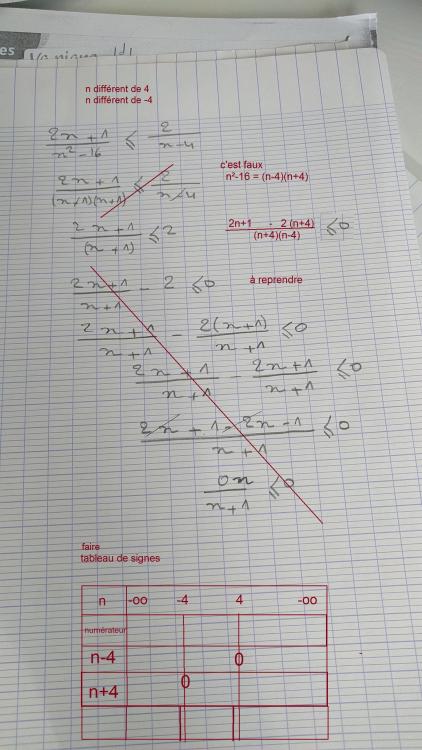 n différent de 4
n différent de -4
2x + 1 / x² - 16 ⩽ 2 / x - 4
c'est faux
n²-16 = (n-4)(n+4)
2x + 1 / (x+1)(x+1) ⩽ 2 / x-4
2x + 1 / (x + 1) ⩽ 2
2n+1 - 2 (n+4) / (n+4)(n-4) ⩽ 0
à reprendre
2x+1 / x+1 - 2 ⩽ 0
2x + 1 / x + 1 - 2(x+1) / x + 1 ⩽ 0
2x + 1 / x + 1 - 2x + 1 / x + 1 ⩽ 0
2x + 1 - 2x - 1 / x + 1 ⩽ 0
0x / x + 1 ⩽ 0
faire
tableau de signes
n -oo -4 4 -oo
numérateur
n-4 0
n+4 0